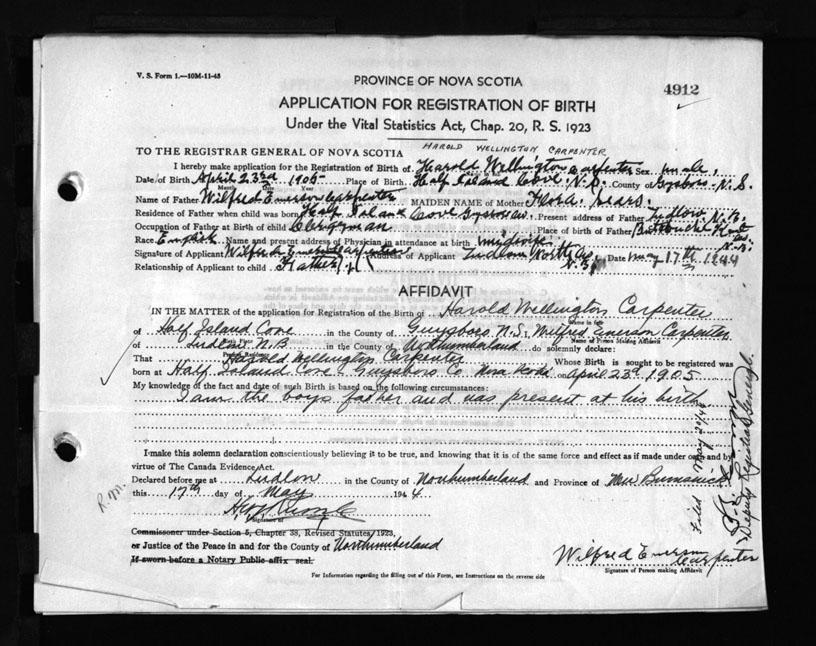 V. S. Form 1.—10M-11-43
PROVINCE OF NOVA SCOTIA
4912
APPLICATION FOR REGISTRATION OF BIRTH
Under the Vital Statistics Act, Chap. 20, R. S. 1923
HAROLD WELLINGTON CARPENTER
TO THE REGISTRAR GENERAL OF NOVA SCOTIA
I hereby make application for the Registration of Birth of Harold Wellington Carpenter Sex male.
Date of Birth April 23rd 1905 Place of Birth Half Island Cove, N.S. County of Guysboro. N.S.
Month Day Year
Name of Father Wilfred Emerson Carpenter MAIDEN NAME of Mother Flora Sears
Residence of Father when child was born Half Island Cove Guysboro. Present address of Father Ludlow N.B.
Occupation of Father at Birth of child Clergyman Place of birth of Father Buctouche Kent
Co. N.B.
Race English Name and present address of Physician in attendance at birth midwife
Signature of Applicant Wilfred Emerson Carpenter Address of Applicant Ludlow North. Co. N.B. Date May 17th 1944
Relationship of Applicant to child Father
AFFIDAVIT
IN THE MATTER of the application for Registration of the Birth of Harold Wellington Carpenter
Name in full
of Half Island Cove in the County of Guysboro N.S., Wilfred Emerson Carpenter
Birth Place Name of Person Making Affidavit
of Ludlow N.B in the County of Northumberland do solemnly declare:
Present Residence
That Harold Wellington Carpenter Whose Birth is sought to be registered was
born at Half Island Cove Guysboro Co. Nova Scotia on April 23rd 1905
My knowledge of the fact and date of such Birth is based on the following circumstances:
I am the boys father and was present at his birth
I make this solemn declaration conscientiously believing it to be true, and knowing that it is of the same force and effect as if made under oath and by
virtue of The Canada Evidence Act.
Declared before me at Ludlow in the County of Northumberland and Province of New Brunswick
this 17th day of May 1944
Signature of
Commissioner under Section 5, Chapter 38, Revised Statutes 1923,
or Justice of the Peace in and for the County of Northumberland
If sworn before a Notary Public affix seal.
Wilfred Emerson Carpenter
Signature of Person making Affidavit
For Information regarding the filling out of this Form, see Instructions on the reverse side
Filed May 20/44
Deputy Registrar General.